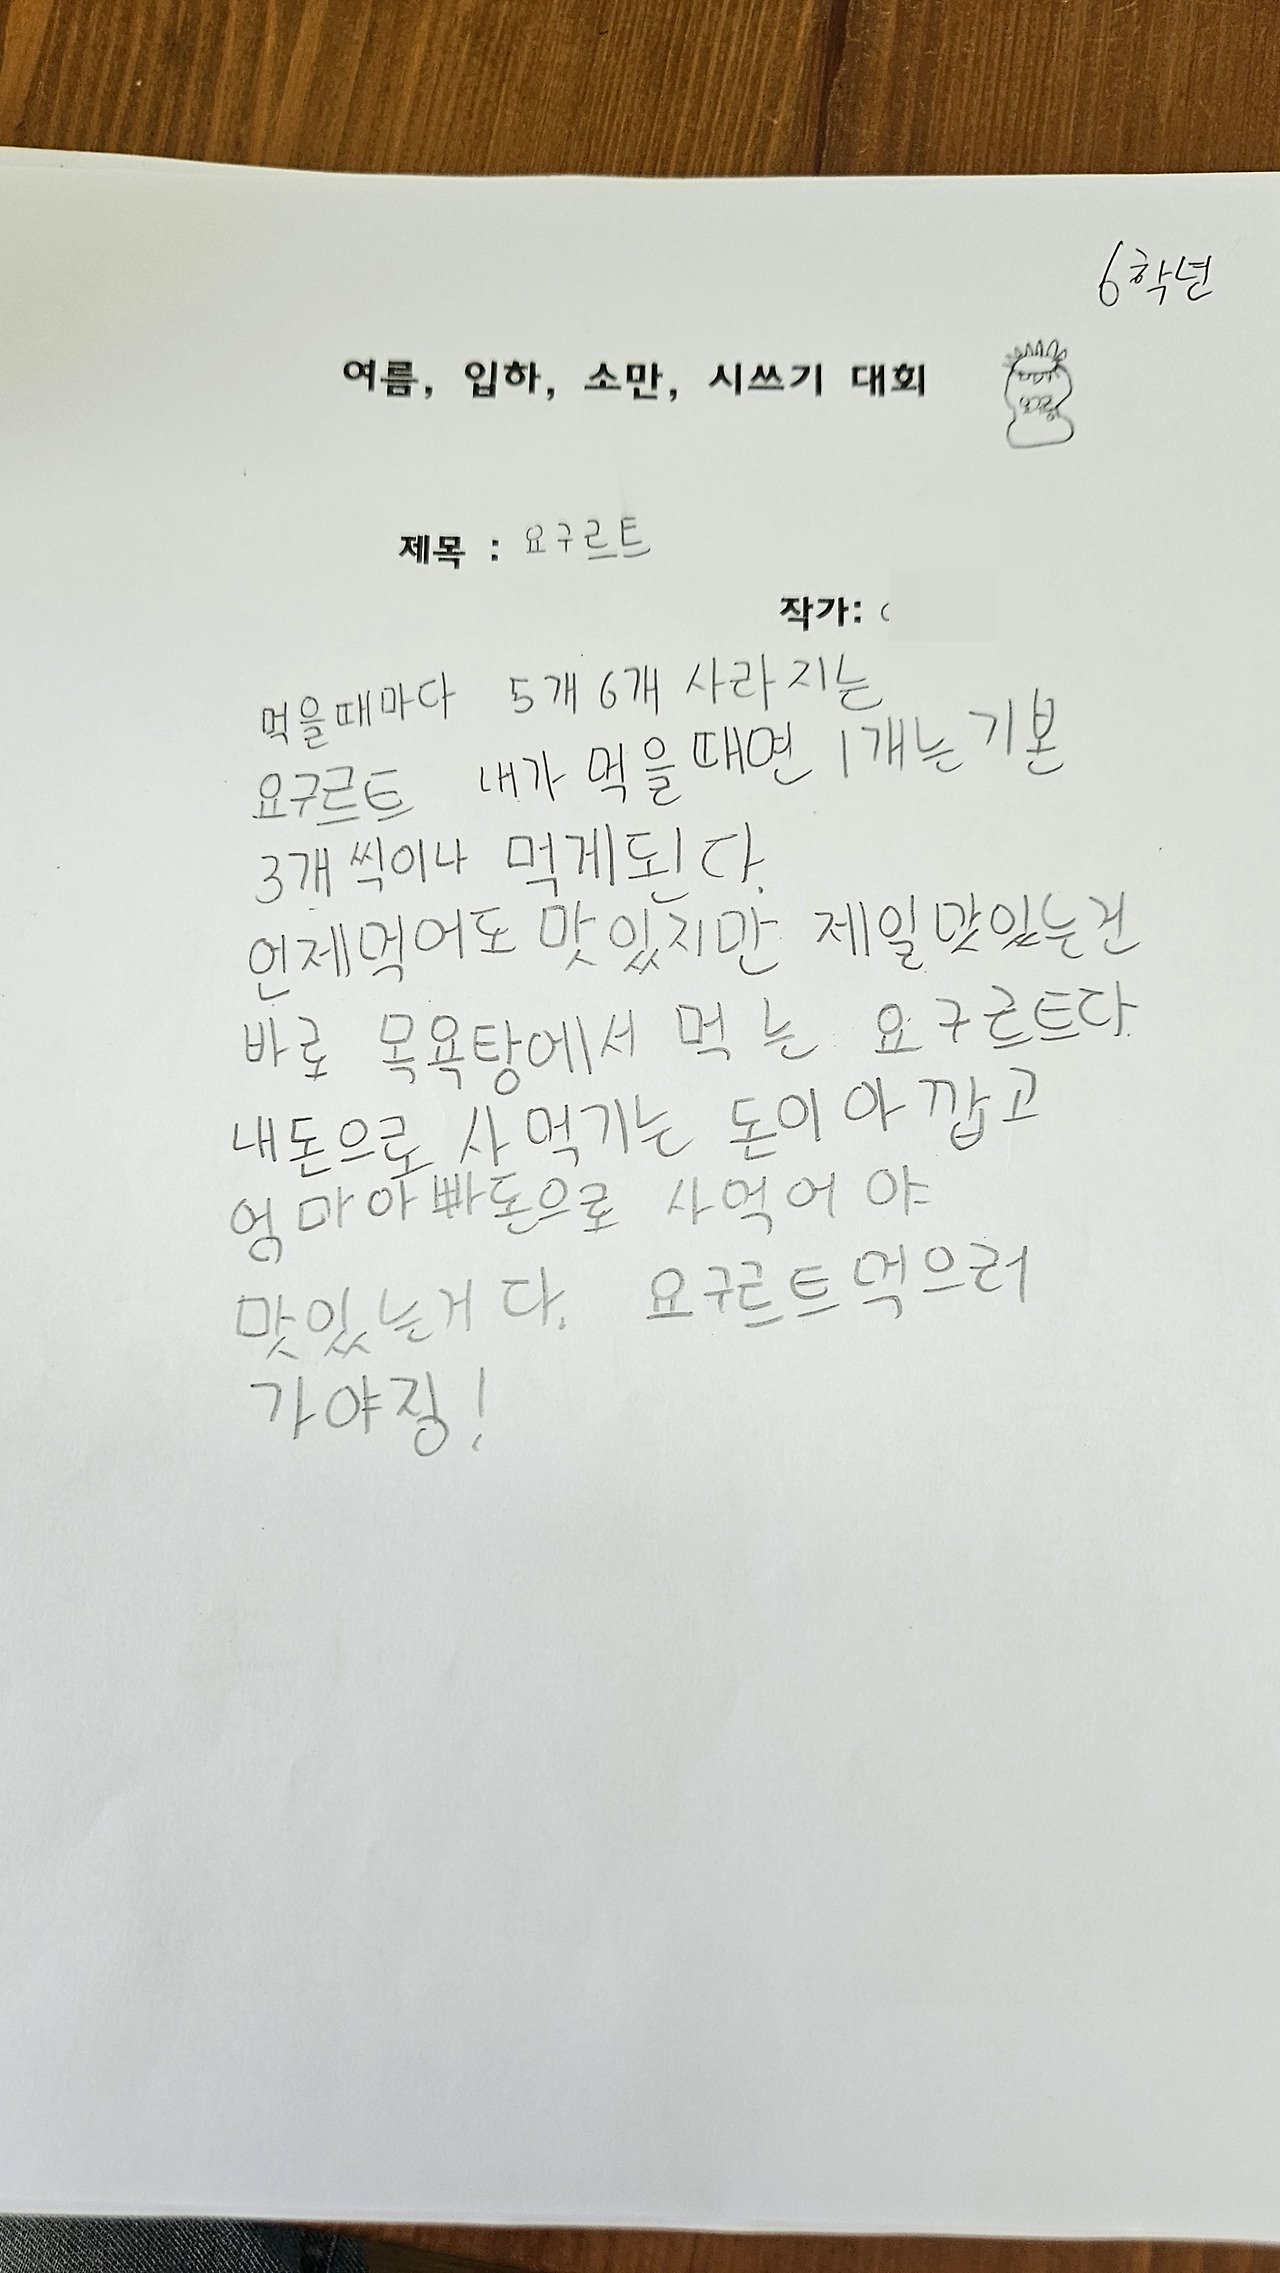 6학년
여름, 입하, 소만, 시쓰기 대회
제목 : 요구르트
작가:
먹을때마다 5개 6개 사라지는
요구르트 내가 먹을때면 1개는 기본
3개씩이나 먹게된다.
언제먹어도 맛있지만 제일맛있는건
바로 목욕탕에서 먹는 요구르트다.
내돈으로 사먹기는 돈이 아깝고
엄마아빠돈으로 사먹어야
맛있는거다. 요구르트먹으러
가야징!